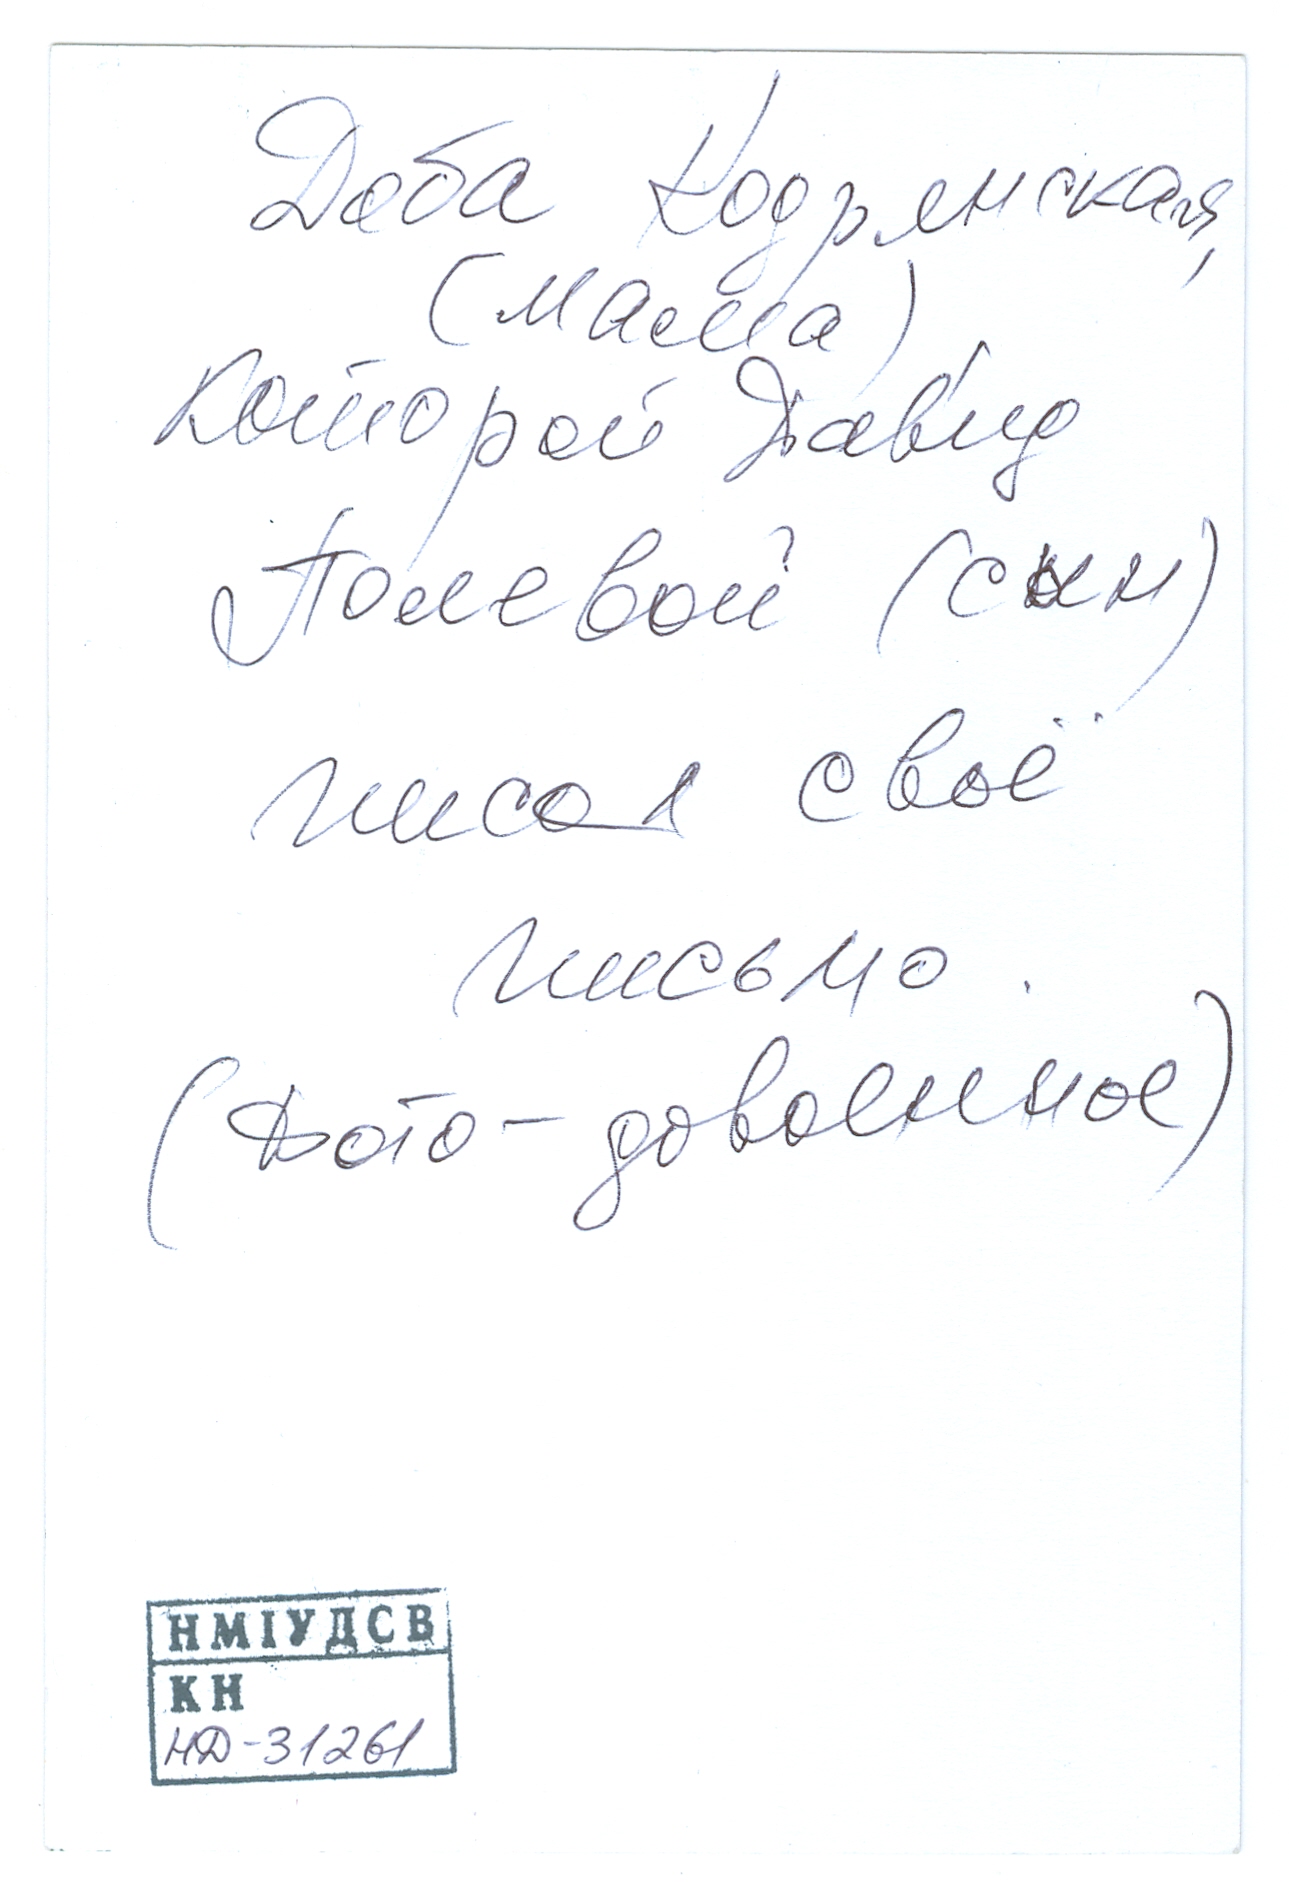 Доба Кодрянская,
(мама)
которой Давид
Полевой (сын)
писал своё
письмо.
(Фото-довоенное)
НМІУДСВ
КН
НД-31261